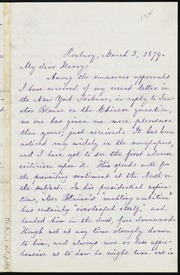 Roxbury, March 3, 1879.
My dear Henry:
Among the numerous approvals
I have received of my recent letter
in the New York Tribune, in reply to Sen-
ator Blaine on the Chinese question,
no one has given me more pleasure
than yours, just received. It has been
noticed very widely in the newspapers,
and I have yet to see the first adverse
criticism upon it. This speaks well for
the prevailing sentiment at the North on
the subject. In his presidential aspira-
tions, Mr. Blaine's "vaulting ambition"
has certainly "overleaped itself," and
landed him in the dust, face downward.
Though not at any time strongly drawn
to him, and always more or less appre-
hensive as to how he might turn out